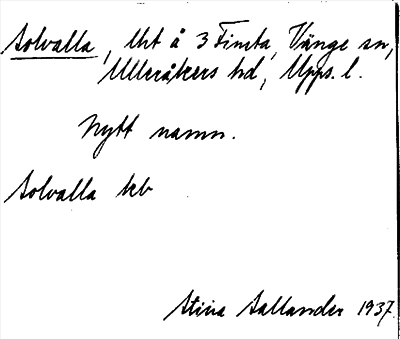 Solvalla, lht å 3 Finsta, Vänge sn,
Ulleråkers hd, Upps. l.
Nytt namn.
Solvalla kb
Stina Sallander 1937.